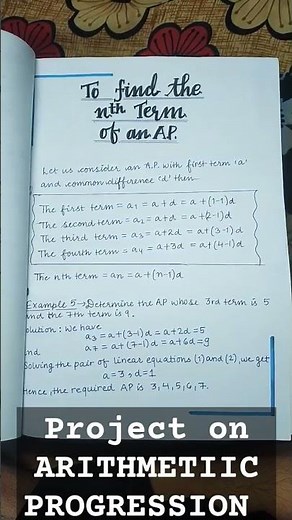 To find the
nth Term
of an AP.
Let us consider an A.P. with first term 'a'
and common difference 'd' then
The first term = a₁ = a + d = a + (1-1)d
The second term = a₂ = a+d = a+(2-1)d
The third term = a₃ = a+2d = a+(3-1)d
The fourth term = a₄ = a+3d = a+(4-1)d
The nth term = an = a+(n-1)d
Example 5→ Determine the AP whose 3rd term is 5
and the 7th term is 9.
olution: We have
a₃ = a+(3-1)d = a+2d=5
nd
a₇ = a+(7-1)d = a+6d=9
Solving the pair of linear equations (1) and (2), we get
a=3, d=1
Hence, the required AP is 3,4,5,6,7.
Project on
ARITHMETIIC
PROGRESSION